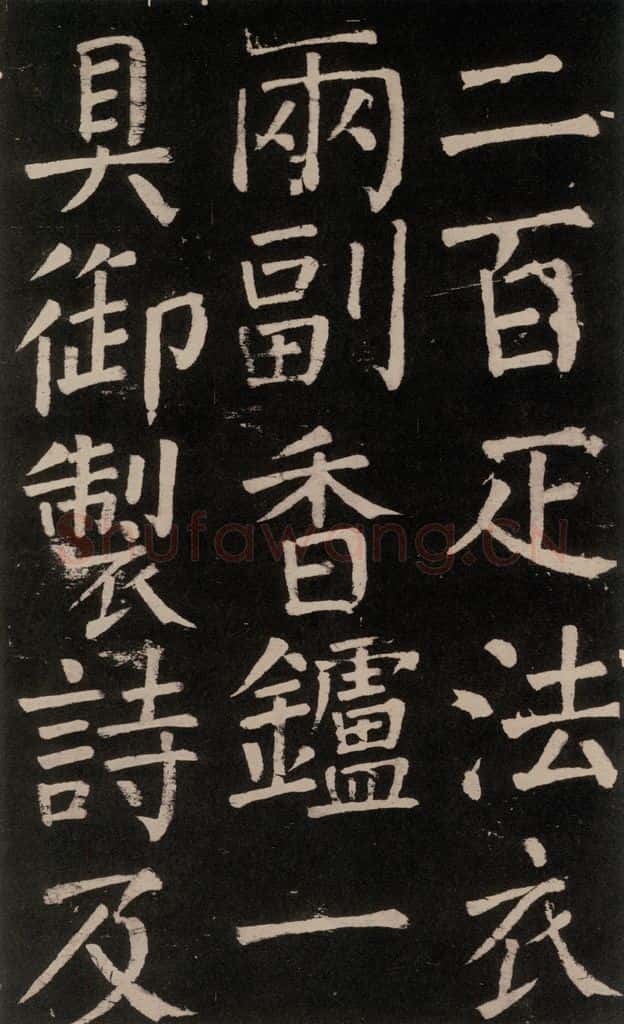 二百疋法衣
兩副香鑪一
具御製詩及
Shufawang.CN